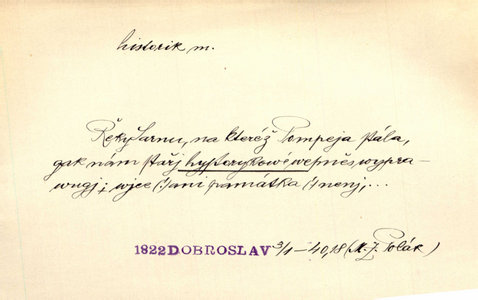 historik m.
Řěky Sarnu, na kteréž Pompeja stála,
gak nám stařj hystorykowé wespěs wypra-
wugj; wjce (t)ani památka (t)nenj,...
1822 DOBROSLAV 3/1-40,18 (M. Z. Polák)